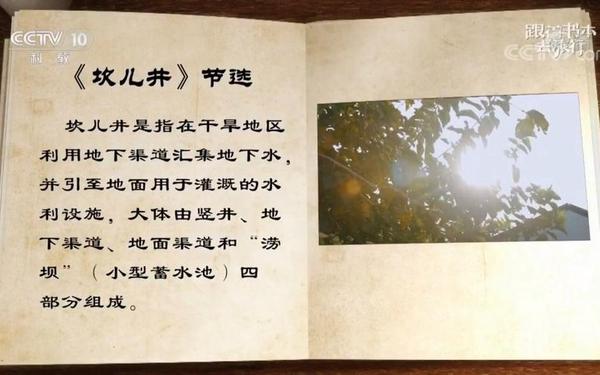 CCTV 10
科教
跟着书本
去旅行
CCTV.com
《坎儿井》节选
坎儿井是指在干旱地区
利用地下渠道汇集地下水，
并引至地面用于灌溉的水
利设施，大体由竖井、地
下渠道、地面渠道和“涝
坝”（小型蓄水池）四
部分组成。